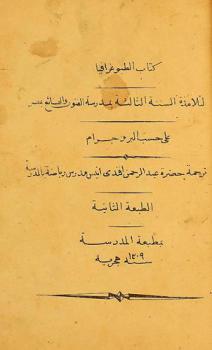 كتاب الطبوغرافيا
لتلامذة السنة الثالثة بمدرسة الفنون والصنائع بمصر
على حسب البروجرام
ترجمة حضرة عبد الرحمن افندى انيس مدرس رياضة بالمدرسة
الطبعة الثانية
بمطبعة المدرسة
سنة ١٣٠٩ هجرية